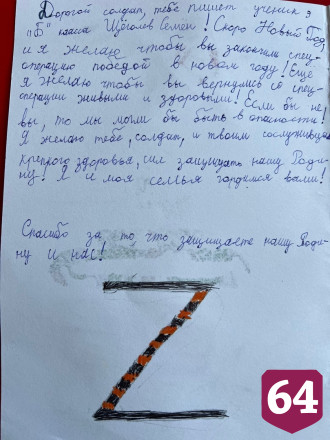 Дорогой солдат, тебе пишет ученик 3
"Б" класса Щёголев Семён! Скоро Новый Год
и я желаю чтобы вы закончили спец-
операцию победой в новом году! Ещё
я желаю чтобы вы вернулись со спец-
операции живыми и здоровыми! Если бы не
вы, то мы могли бы быть в опасности!
Я желаю тебе, солдат, и твоим сослуживцам
крепкого здоровья, сил защищать нашу Роди-
ну! Я и моя семья гордимся вами!
Спасибо за то что защищаете нашу Роди-
ну и нас!
Z
64